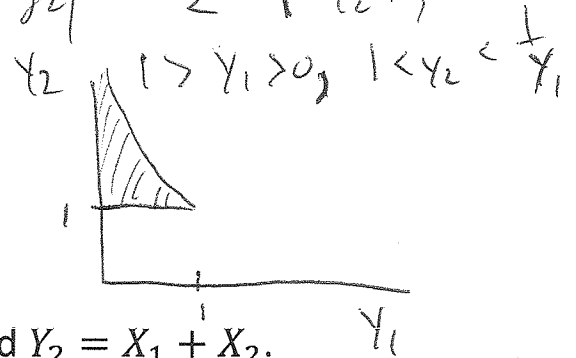 Y₂ 1 > Y₁ > 0, 1 < y₂ < 1/Y₁
1
1
Y₁
d Y₂ = X₁ + X₂.